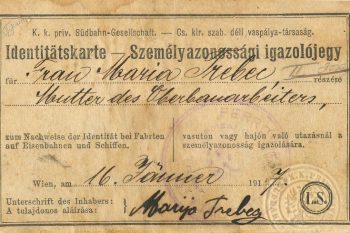 K. k. priv. Südbahn-Gesellschaft. — Cs. kir. szab. déli vaspálya-társaság.
Identitätskarte — Személyazonossági igazolójegy
für Frau Maria Trebec részére
Mutter des Oberbauarbeiters,
zum Nachweise der Identität bei Fahrten auf Eisenbahnen und Schiffen.
vasuton vagy hajón való utazásnál a személyazonosság igazolására.
Wien, am 16. Jänner 191
Unterschrift des Inhabers:
A tulajdonos aláírása:
Marija Trebeg
L.S.